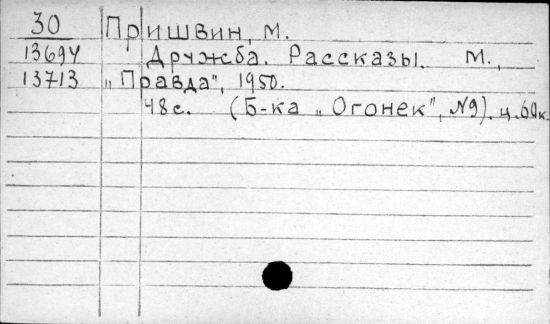 30 Пришвин, М.
13694 Дружба. Рассказы. М.,
13713 „Правда", 1950.
48 с. (Б-ка „Огонек", №9). ц. 60к.